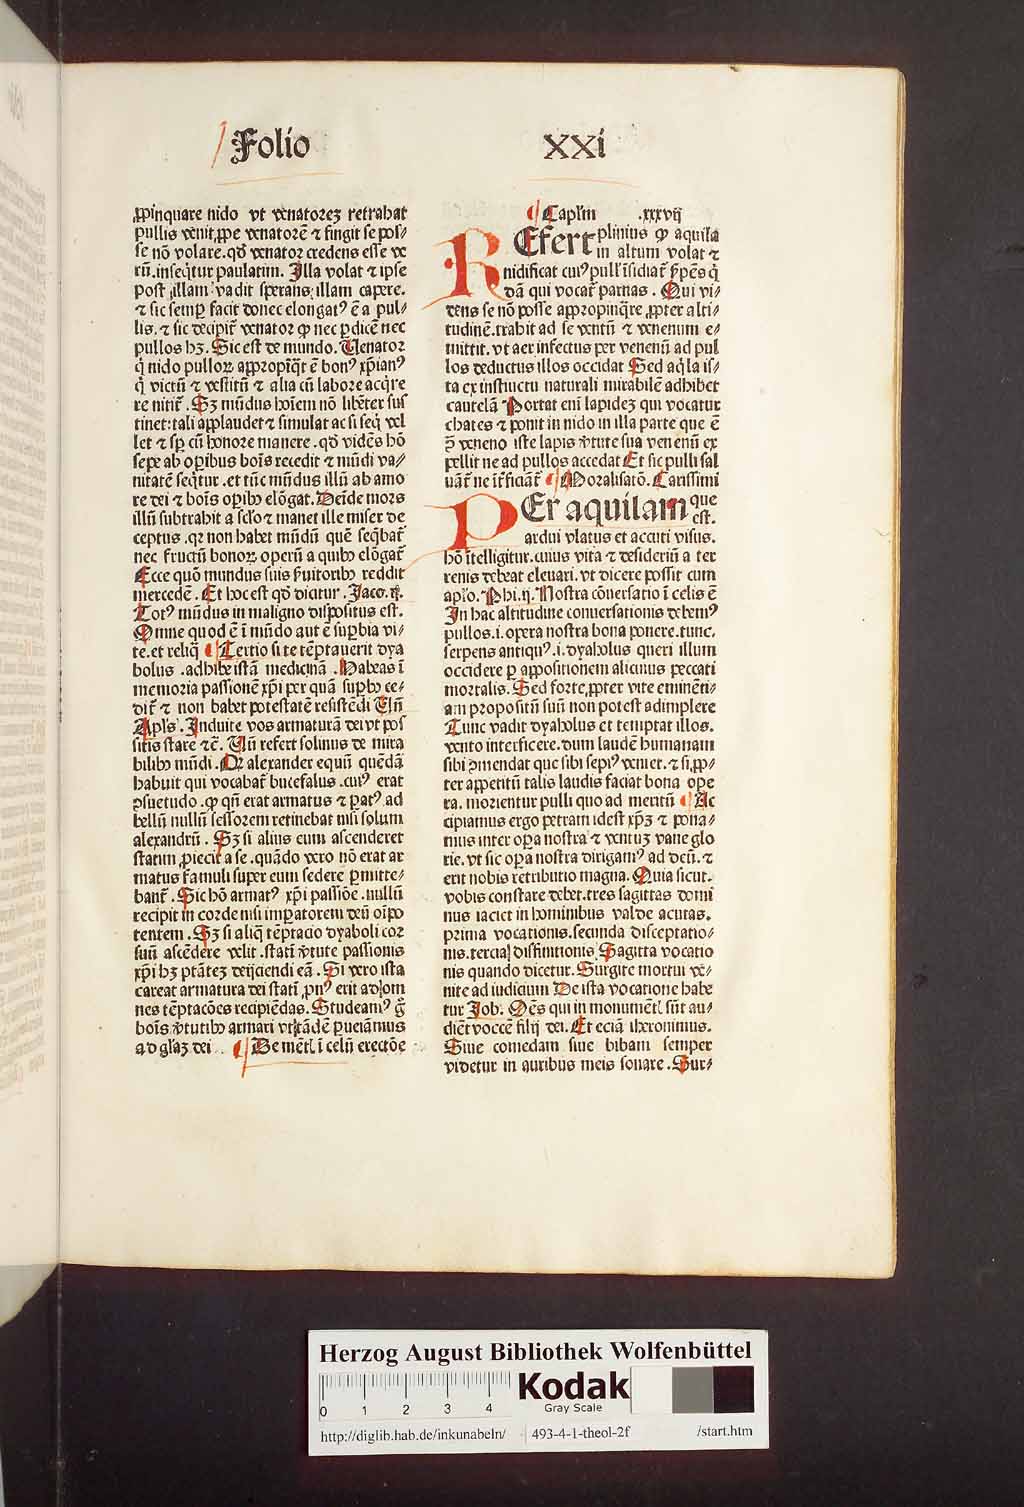 Folio
XXi
ꝓpinquare nido vt venatoreꝫ retrahat
pullis venit ꝓpe venatorē ⁊ fingit se pos⸗
se nō volare. qđ venator credens esse ve
rū. inseqͥtur paulatim. Illa volat ⁊ ipse
post illam vadit sperans illam capere.
⁊ sic semꝑ facit donec elongatꝰ ē a pul⸗
lis. ⁊ sic decipit̄ venator ꝙ nec ꝑdicē nec
pullos hꝫ. Sic est de mundo. Uenator
q̇ nido pulloꝝ appropiq̄t ē bonꝰ xp̄ianꝰ
q̇ victū ⁊ vestitū ⁊ alia cū labore acq̇re
re nitit̄. Sꝫ mūdus hoīem nō libēter sus
tinet: tali applaudet ⁊ simulat ac si seq̇ vel
let ⁊ sꝑ cū honore manere. qđ vidēs hō
sepe ab oꝑibus bonis recedit ⁊ mūdi va⸗
nitatē seq̄tur. et tūc mūdus illū ab amo
re dei ⁊ bonis oꝑibꝰ elōgat. Deīde mors
illū subtrahit a sclo ⁊ manet ille miser de
ceptus. qꝛ non habet mūdū quē seq̄bat̄
nec fructū bonoꝝ operū a quibꝰ elōgat̄
Ecce quō mundus suis ẜuitoribꝰ reddit
mercedē. Et hoc est qđ dicitur. Jaco. ij.
Totꝰ mūdus in maligno dispositus est.
Omne quod ē ī mūdo aut ē suꝑbia vi⸗
te. et reliq̄ Tertio si te tēptauerit dya
bolus. adhibe istā medicinā. Habeas ī
memoria passionē xp̄i per quā suꝑbꝰ ce⸗
dit̄ ⁊ non habet potestatē resistēdi Uñ
Apl̄s. Induite vos armaturā dei vt pos
sitis stare ⁊c̄. Uñ refert solinus de mira
bilibꝰ mūdi. Qꝛ alexander equū quēdā
habuit qui vocabat̄ bucefalus. cuiꝰ erat
ꝯsuetudo. ꝙ qñ erat armatus ⁊ ꝑatꝰ ad
bellū nullū sessorem retinebat nisi solum
alexandrū. Sꝫ si alius eum ascenderet
statim ꝓiecit a se. quādo vero nō erat ar
matus famuli super eum sedere ꝑmitte⸗
bant̄. Sic hō armatꝰ xp̄i passiōe. nullū
recipit in corde nisi imꝑatorem deū oīpo
tentem. Sꝫ si aliq̄ tēptacio dyaboli cor
suū ascēdere velit. statī v̄tute passionis
xp̄i hꝫ ptātēꝫ deijciendi eā. Si vero ista
careat armatura dei statī ꝓnꝰ erit ad om
nes tēptacōes recipiēdas. Studeamꝰ g̊
bonis v̄tutibꝰ armari vt tādē ꝑueiāmus
ad gl̄iaꝫ dei De mētꝭ ī celū erectōe
Capl̄m .xxxvij
REfert plinius ꝙ aquila
in altum volat ⁊
nidificat cuiꝰ pull' īsidiat̄ ẜpēs q̄
dā qui vocat̄ parnas. Qui vi⸗
dens se nō posse appropinq̄re ꝓpter alti⸗
tudinē. trahit ad se ventū ⁊ venenum e⸗
mittit. vt aer infectus per venenū ad pul
los deductus illos occidat Sed aq̇la is⸗
ta ex instinctu naturali mirabilē adhibet
cautelā Portat enī lapideꝫ qui vocatur
chates ⁊ ponit in nido in illa parte que ē
ꝯ̄ veneno iste lapis v̄tute sua venenū ex
pellit ne ad pullos accedat Et sic pulli sal
uāt̄ ne īt̄ficiāt̄ Moralisatō. Carissimi
PEr aquilam que
est.
ardui vlatus et accuti visus.
hō ītelligitur. cuius vita ⁊ desideriū a ter
renis debeat eleuari. vt dicere possit cum
apl̄o. Phi. ij. Nostra cōuersatio ī celis ē
In hac altitudine conuersationis debemꝰ
pullos. i. opera nostra bona ponere. tunc.
serpens antiquꝰ. i. dyabolus queri illum
occidere ꝑ appositionem alicuius peccati
mortalis. Sed forte ꝓpter vite eminēti⸗
am propositū suū non potest adimplere
Tunc vadit dyabolus et temptat illos.
vento interficere. dum laudē humanam
sibi ꝯmendat que sibi sepiꝰ veniet. ⁊ si ꝓp⸗
ter appetitū talis laudis faciat bona ope
ra. morientur pulli quo ad meritū Ac
cipiamus ergo petram idest xp̄ꝫ ⁊ pona⸗
mus inter oꝑa nostra ⁊ ventuꝫ vane glo
rie. vt sic oꝑa nostra dirigamꝰ ad deū. ⁊
erit nobis retributio magna. Quia sicut.
vobis constare debet. tres sagittas domi
nus iaciet in hominibus valde acutas.
prima vocationis. secunda disceptatio⸗
nis. tercia diffinitionis Sagitta vocatio
nis quando dicetur. Surgite mortui ve⸗
nite ad iudicium De ista vocatione habe
tur Joh. Oēs qui in monumētꝭ sūt au⸗
diēt voccē filij dei. Et eciā iheronimus.
Siue comedam siue bibam semper
videtur in auribus meis sonare. Sur⸗
Herzog August Bibliothek Wolfenbüttel
0 1 2 3 4
Kodak
Gray Scale
http://diglib.hab.de/inkunabeln/ 493-4-1-theol-2f /start.htm